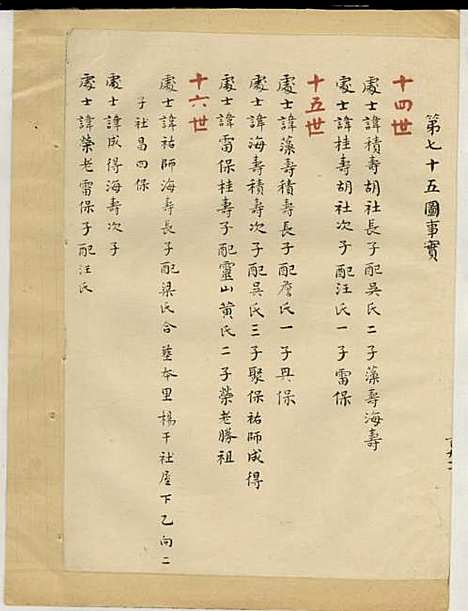 第七十五圖事實
十四世
處士諱積壽胡社長子配吳氏二子藻壽海壽
處士諱桂壽胡社次子配汪氏一子雷保
十五世
處士諱藻壽積壽長子配詹氏一子具保
處士諱海壽積壽次子配吳氏三子聚保祐師成得
處士諱雷保桂壽子配靈山黃氏二子榮老勝祖
十六世
處士諱祐師海壽長子配梁氏合塟本里楊干社屋下乙向二
子社昌四保
處士諱成得海壽次子
處士諱榮老雷保子配汪氏